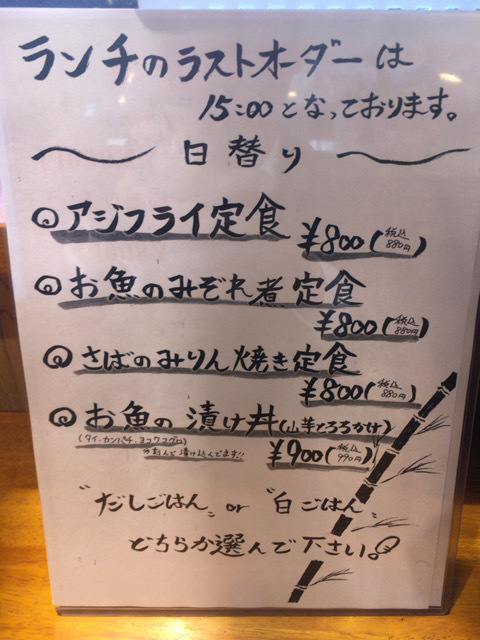 ランチのラストオーダーは
15:00となっております。
日替り
アジフライ定食 ¥800(税込880円)
お魚のみぞれ煮定食
¥800(税込880円)
さばのみりん焼き定食
¥800(税込880円)
お魚の漬け丼(山芋とろろかけ)
(タイ・カンパチ・ヨコワマグロ) ¥900(税込990円)
漬け込んでます!!
"だしごはん" or "白ごはん"
どちらか選んで下さい。